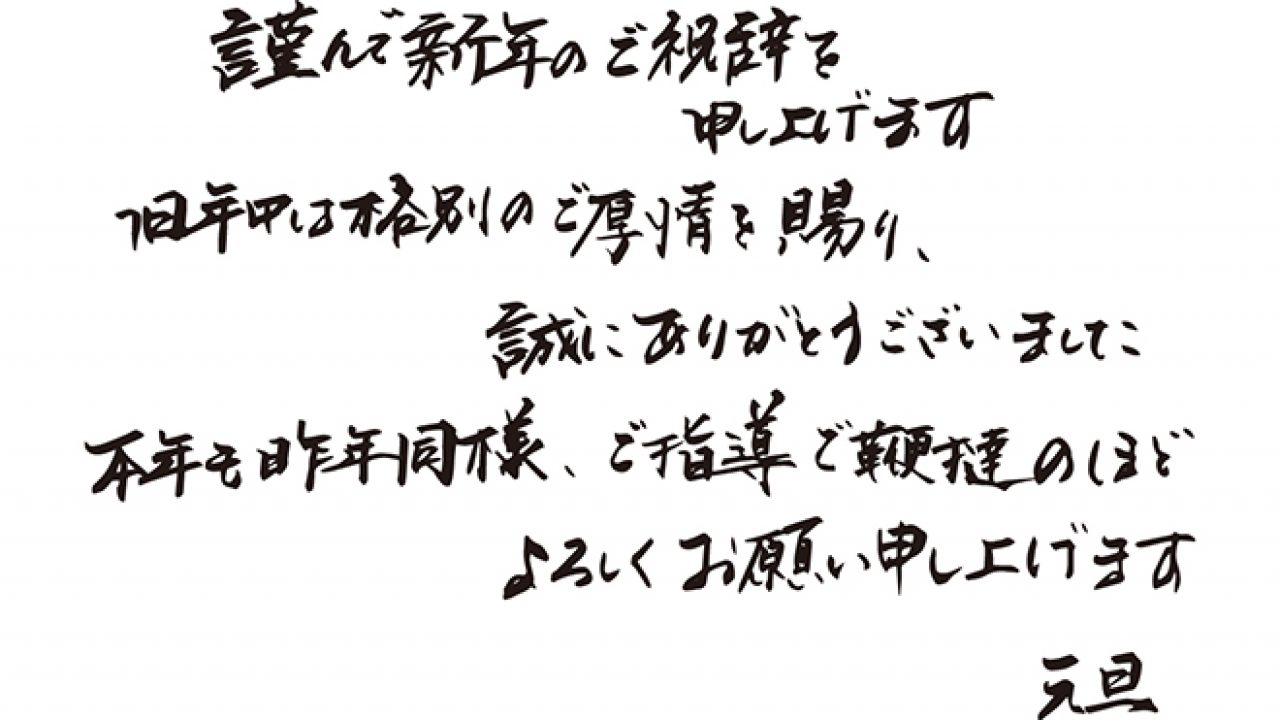 謹んで新年のご祝辞を
申し上げます
旧年中は格別のご厚情を賜り、
誠にありがとうございました
本年も昨年同様、ご指導ご鞭撻のほど
よろしくお願い申し上げます
元旦